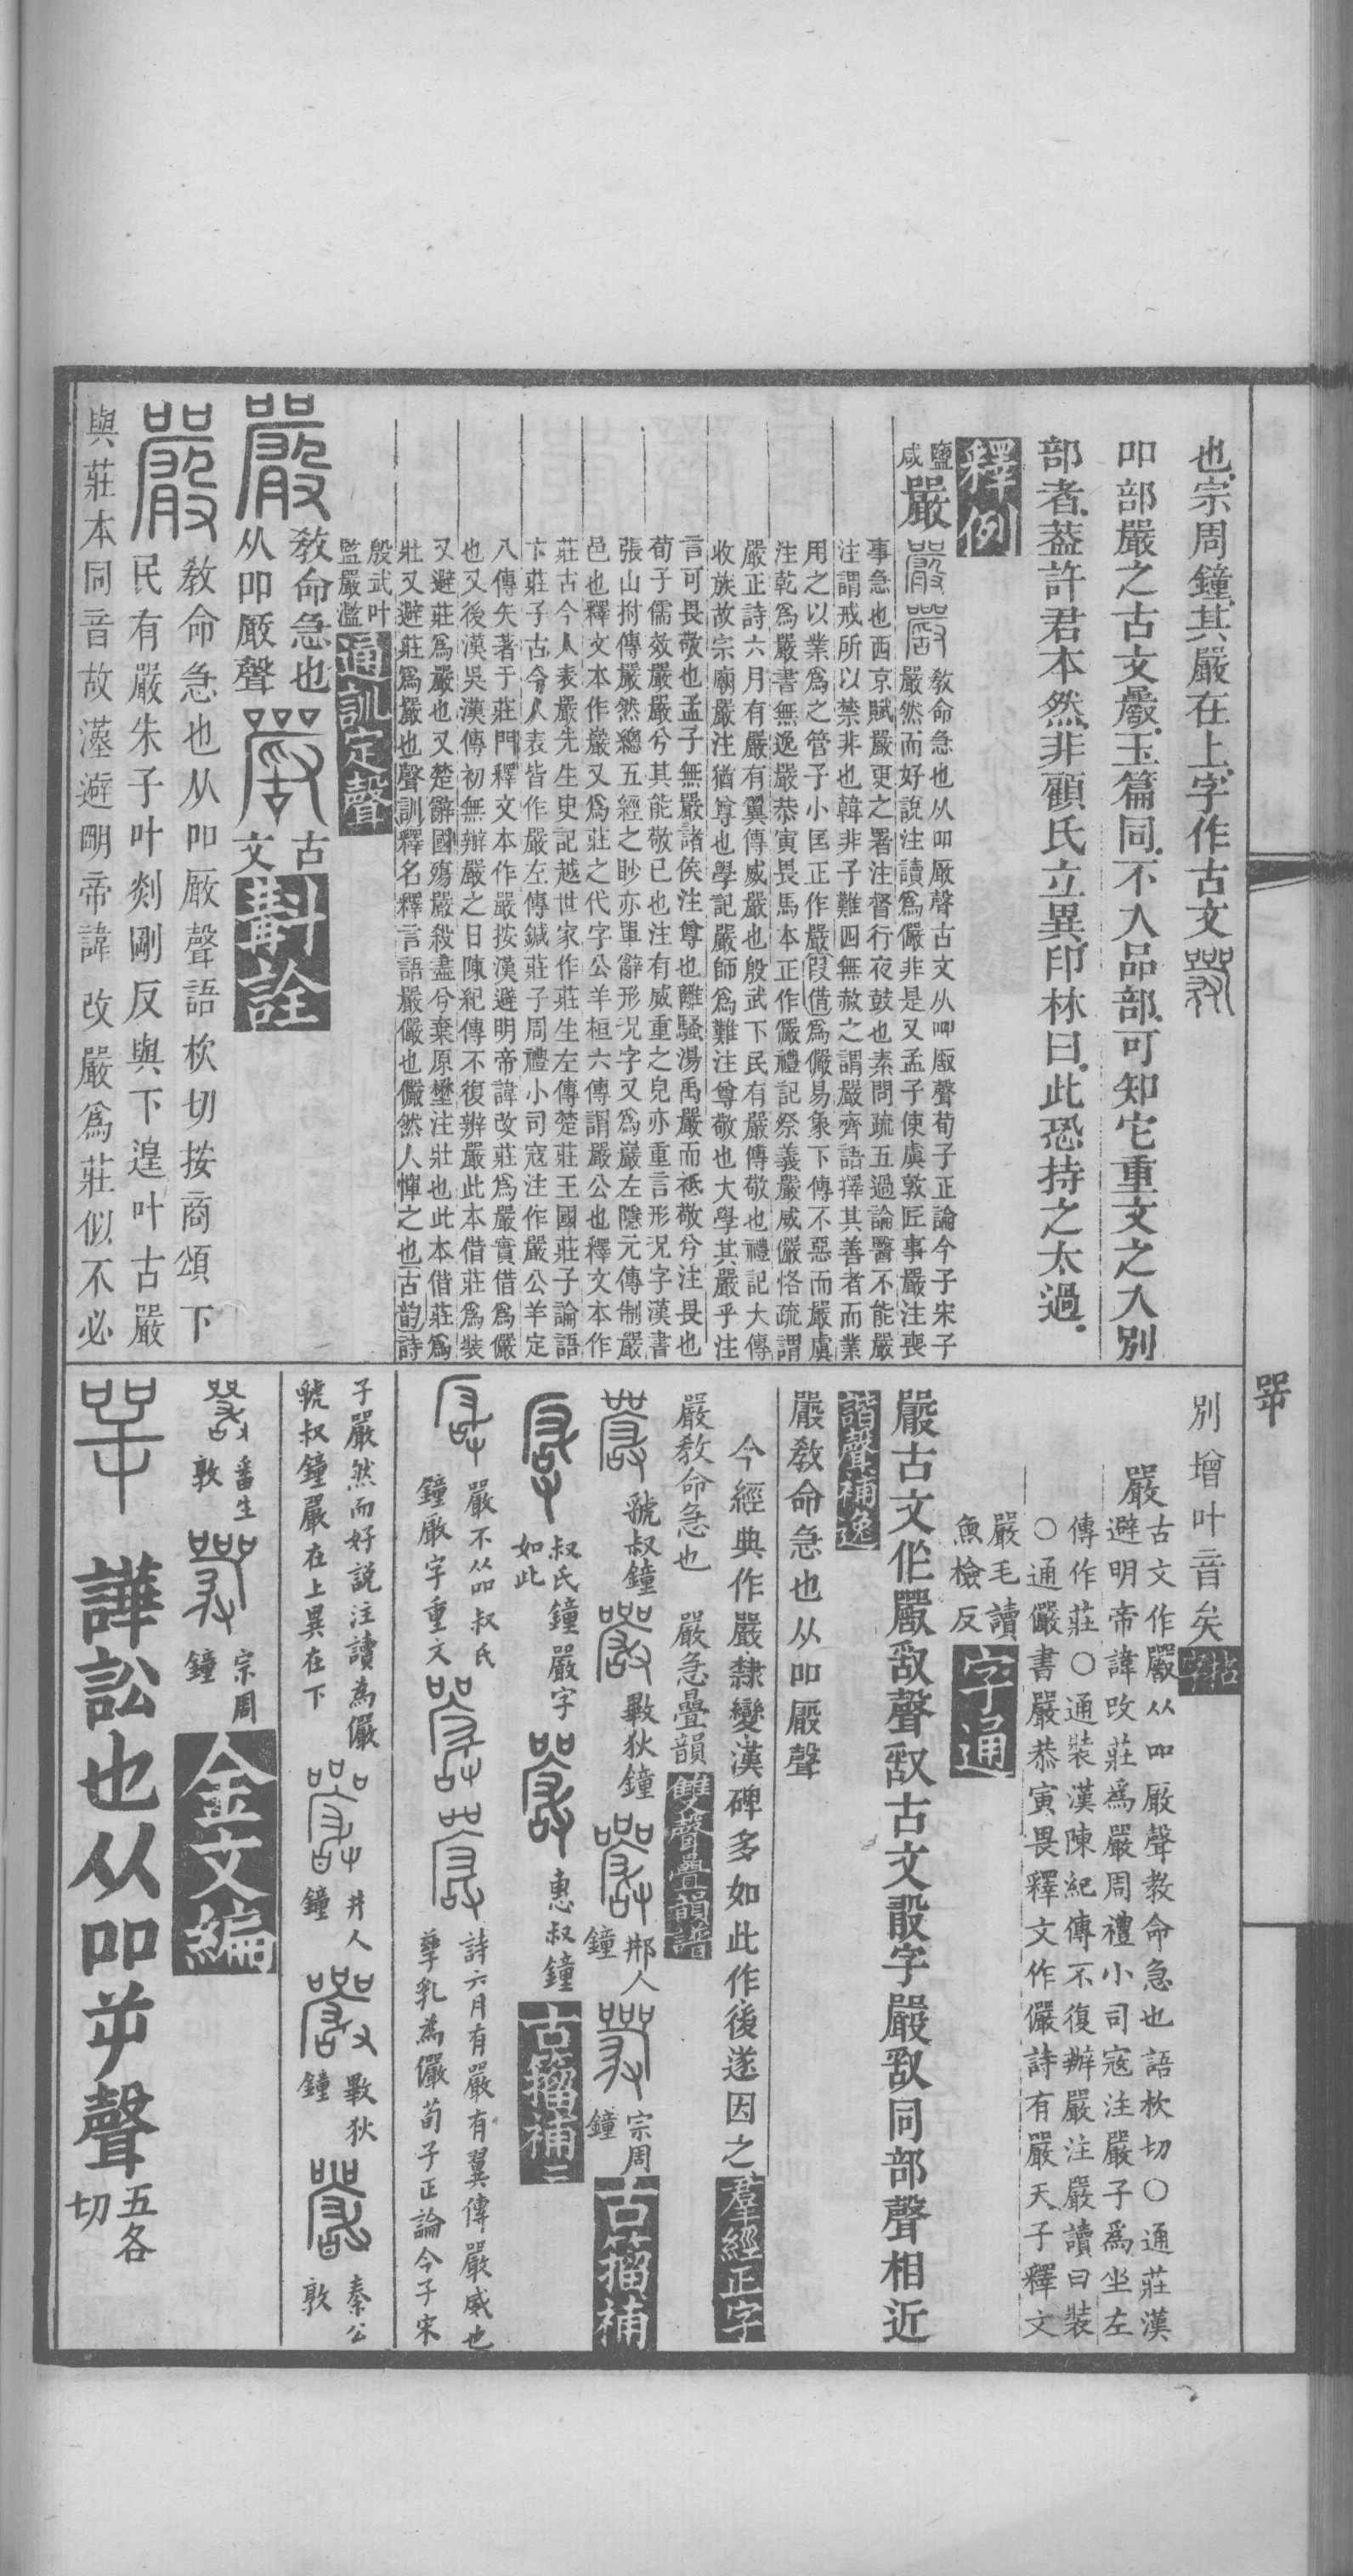 也.宗周鐘.其嚴在上.字作古文
吅部嚴之古文𠪚.玉篇同.不入品部.可知它重文之入別
部者.葢許君本然.非顧氏立異.印林曰.此恐持之太過.
釋例
鹽
咸
嚴
敎命急也从吅厰聲古文从吅厰聲荀子正論今子宋子
嚴然而好說注讀爲儼非是又孟子使虞敦匠事嚴注喪
事急也西京賦嚴更之署注督行夜鼓也素問疏五過論醫不能嚴
注謂戒所以禁非也韓非子難四無赦之謂嚴齊語擇其善者而業
用之以業爲之管子小匡正作嚴叚借爲儼易象下傳不惡而嚴虞
注乾爲嚴書無逸嚴恭寅畏馬本正作儼禮記祭義嚴威儼恪疏謂
嚴正詩六月有嚴有翼傳威嚴也殷武下民有嚴傳敬也禮記大傳
收族故宗廟嚴注猶尊也學記嚴師爲難注尊敬也大學其嚴乎注
言可畏敬也孟子無嚴諸侯注尊也離騷湯禹嚴而祗敬兮注畏也
荀子儒效嚴嚴兮其能敬已也注有威重之皃亦重言形況字漢書
張山拊傳嚴然總五經之眇亦單辭形況字又爲巖左隱元傳制嚴
邑也釋文本作巖又爲莊之代字公羊桓六傳謂嚴公也釋文本作
莊古今人表嚴先生史記越世家作莊生左傳楚莊王國莊子論語
卞莊子古今人表皆作嚴左傳鍼莊子周禮小司寇注作嚴公羊定
八傳矢著于莊門釋文本作嚴按漢避明帝諱改莊爲嚴實借爲儼
也又後漢吳漢傳初無辦嚴之日陳紀傳不復辨嚴此本借莊爲裝
又避莊爲嚴也又楚辭國殤嚴殺盡兮棄原壄注壯也此本借莊爲
壯又避莊爲嚴也聲訓釋名釋言語嚴儼也儼然人憚之也古韵詩
殷武叶
監嚴濫
通訓定聲
敎命急也
从吅厰聲
古
文
斠詮
敎命急也从吅厰聲語杴切按商頌下
民有嚴朱子叶剡剛反與下遑叶古嚴
與莊本同音故漢避明帝諱改嚴爲莊似不必
別增叶音矣
拈字
嚴
古文作𠪚从吅厰聲敎命急也語杴切○通莊漢
避明帝諱改莊爲嚴周禮小司寇注嚴子爲坐左
傳作莊○通裝漢陳紀傳不復辦嚴注嚴讀曰裝
○通儼書嚴恭寅畏釋文作儼詩有嚴天子釋文
嚴毛讀
魚檢反
字通
嚴古文作𠪚敢聲敢古文㪉字嚴敢同部聲相近
諧聲補逸
嚴敎命急也从吅厰聲
今經典作嚴隸變漢碑多如此作後遂因之
羣經正字
嚴敎命急也 嚴急疊韻
雙聲疊韻譜
虢叔鐘
斁狄鐘
邢人
鐘
宗周
鐘
古籀補
叔氏鐘嚴字
如此
惠叔鐘
古籀補二
嚴不从吅叔氏
鐘厰字重文
詩六月有嚴有翼傳嚴威也
孳乳為儼荀子正論今子宋
子嚴然而好說注讀為儼
虢叔鐘嚴在上異在下
井人
鐘
斁狄
鐘
秦公
敦
番生
敦
宗周
鐘
金文編
譁訟也从吅屰聲
五各
切